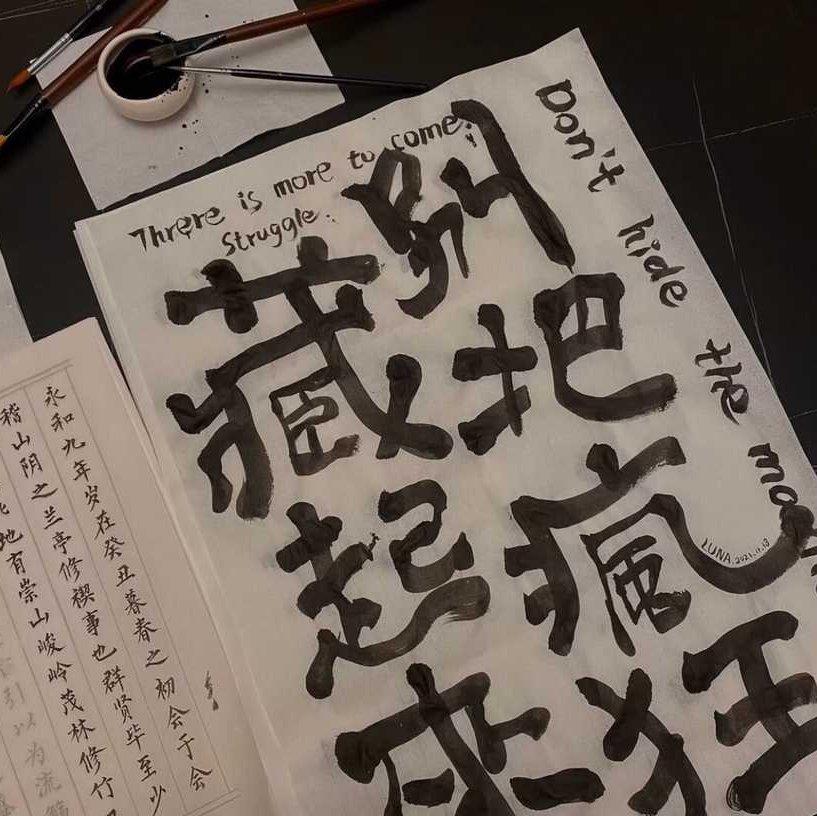 Threre is more to come.
Struggle.
Don't hide the
别把瘋狂
藏起來
LUNA
永和九年岁在癸丑暮春之初会于会
稽山阴之兰亭修禊事也群贤毕至少
地有崇山峻岭茂林修竹
引以为流